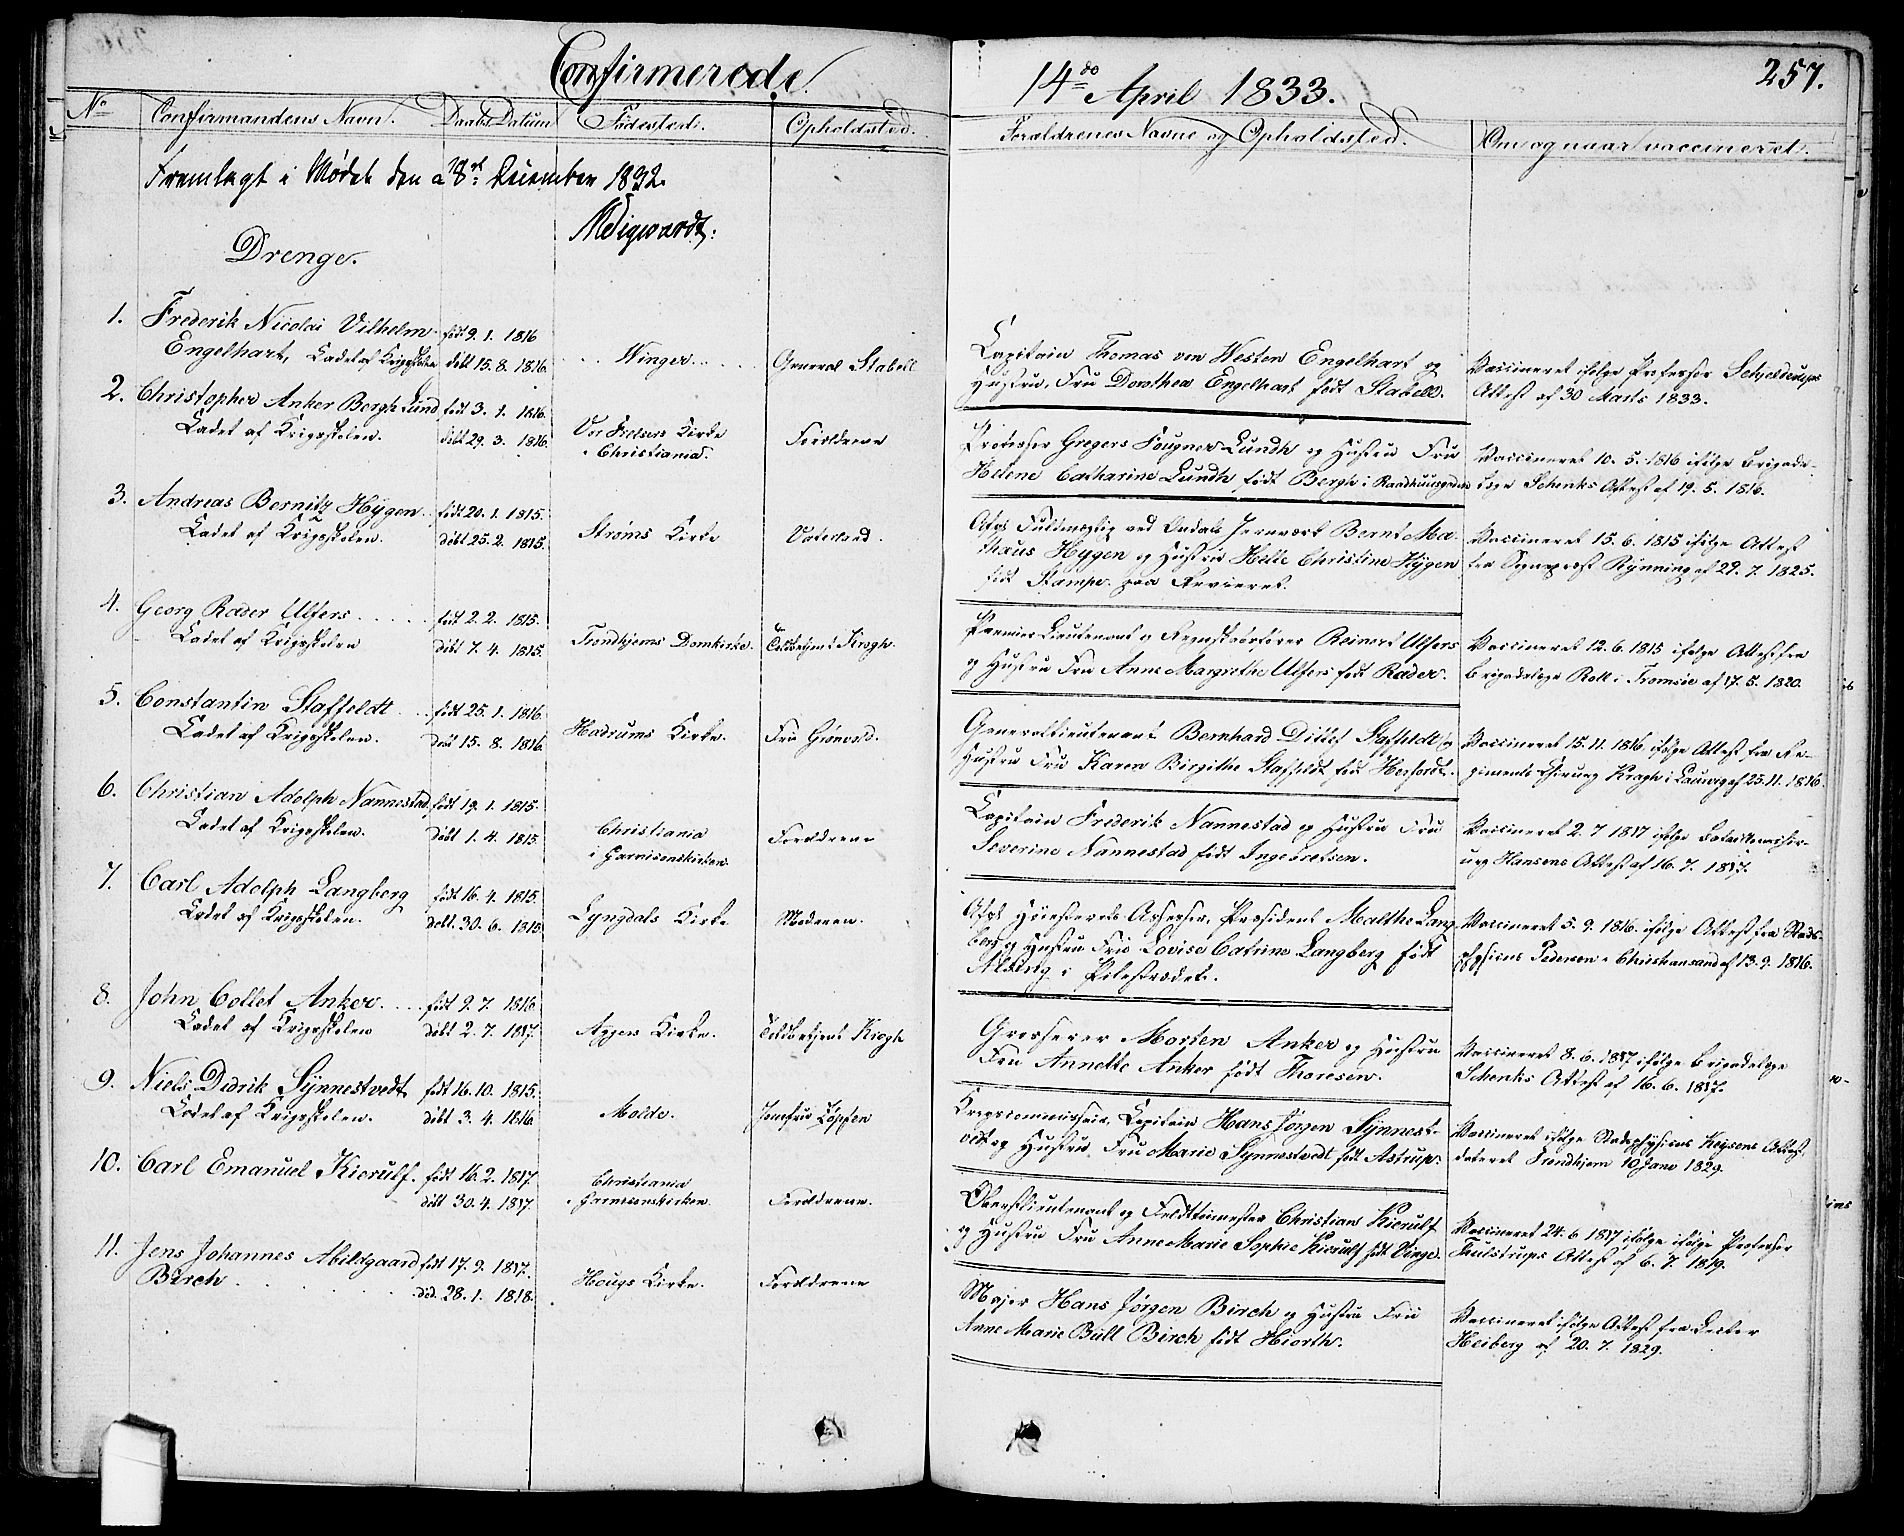 Confirmerede
14de April 1833.
257.
No Confirmandens Navn. Daabs Datum Fødested. Opholdsted. Forældrenes Navne og Opholdsted. Om og naar vaccineret.
Fremlagt i Mødet den 28de December 1832.
Drenge.
1. Frederik Nicolai Vilhelm født 9. 1. 1816
Engelhart, Cadet af Krigsskolen døbt 15. 8. 1816. Winger General Stabell
Capitain Thomas von Westen Engelhart og
Hustru, Fru Dorothea Engelhart født Stabell.
Vaccineret ifølge Professor Schjelderups
Attest af 30 Marts 1833.
2. Christopher Anker Bergh Lund født 3. 1. 1816.
Cadet af Krigsskolen. døbt 29. 3. 1816. Vor Frelsers Kirke
i Christiania. Forældrene
Professor Gregers Fougner Lundh og Hustru Fru
Helene Catharine Lundh født Bergh i Raadhuusgaden
Vaccineret 10. 5. 1816 ifølge Brigade-
læge Schenks Attest af 19. 5. 1816.
3. Andreas Bernitz Hygen født 20. 1. 1815.
Cadet af Krigsskolen. døbt 25. 2. 1815. Strøms Kirke Vaterland.
Afg. Fuldmægtig ved Jernværk Bernt Ma-
thæus Hygen og Hustru Helle Christine Hygen
født Stampe paa Revieret.
Vaccineret 15. 6. 1815 ifølge Attest
fra Sognepræst Rynning af 29. 7. 1825.
4. Georg Rader Ulfers født 2. 2. 1815.
Cadet af Krigsskolen døbt 7. 4. 1815. Trondhjems Domkirke. Toldbetjent Krogh.
Premier Lieutenant og Reinert Ulfers
og Hustru Fru Anne Margrethe Ulfers født Rader.
Vaccineret 12. 6. 1815 ifølge Attest fra
Brigadelæge Roll i Tromsøe af 17. 5. 1820.
5. Constantin Staffeldt født 25. 1. 1816.
Cadet af Krigsskolen. døbt 15. 8. 1816. Hedrums Kirke. Fru Grønvold.
Generallieutenant Bernhard Ditlef Staffeldt og
Hustru Fru Karen Birgithe Staffeldt født
Vaccineret 15. 11. 1816. ifølge Attest fra Re-
giments Chirurg Kragh i Laurvig af 25. 11. 1816.
6. Christian Adolph Nannestad født 19. 1. 1815.
Cadet af Krigsskolen. døbt 1. 4. 1815. Christiania
i Garnisonskirken. Forældrene
Capitain Frederik Nannestad og Hustru Fru
Severine Nannestad født Ingebretsen.
Vaccineret 2. 7 1817 ifølge Bataillonschir-
urg Hansens Attest af 16. 7. 1817.
7. Carl Adolph Langberg født 16. 4. 1815.
Cadet af Krigsskolen. døbt 30. 6. 1815. Lyngdals Kirke Moderen.
Afg. Høiesterets Assessor, Præsident Malthe Lang-
berg og Hustru Fru Lovise Catrine Langberg født
i Pilestrædet.
Vaccineret 5. 9. 1816. ifølge Attest fra Stads-
physicus Pedersen i Christiansand af 13. 9. 1816.
8. John Collet Anker. født 9. 7. 1816.
Cadet af Krigsskolen døbt 2. 7. 1817. Aggers Kirke. Toldbetjent Krogh
Grosserer Morten Anker og Hustru
Fru Annette Anker født Thoresen.
Vaccineret 8. 6. 1817 ifølge Brigadelæge
Schenks Attest af 16. 6. 1817.
9. Niels Didrik Synnestvedt født 16. 10. 1815.
Cadet af Krigsskolen. døbt 3. 4. 1816. Molde. Jomfru
Krigscommissair, Capitain Hans Jørgen Synnest-
vedt og Hustru, Fru Marie Synnestvedt født Astrup.
Vaccineret ifølge Stadsphysicus Keysers Attest,
dateret Trondhjem 10 Janv 1829.
10. Carl Emanuel Kierulf. født 16. 2. 1817.
døbt 30. 4. 1817. Christiania
Garnisonskirken. Forældrene.
Oberstlieutenant og Christian Kierulf
og Hustru Fru Anne Marie Sophie Kierulf født Vinge.
Vaccineret 24. 6 1817 ifølge ifølge Professor
Thulstrups Attest af 6. 7. 1819.
11. Jens Johannes Abildgaard født 17. 9. 1817.
Birch døb. 28. 1. 1818. Hougs Kirke. Forældrene
Major Hans Jørgen Birch og Hustru Fru
Anne Marie Bull Birch født Hiorth.
Vaccineret ifølge Attest fra Lector
Heiberg af 20. 7. 1829.